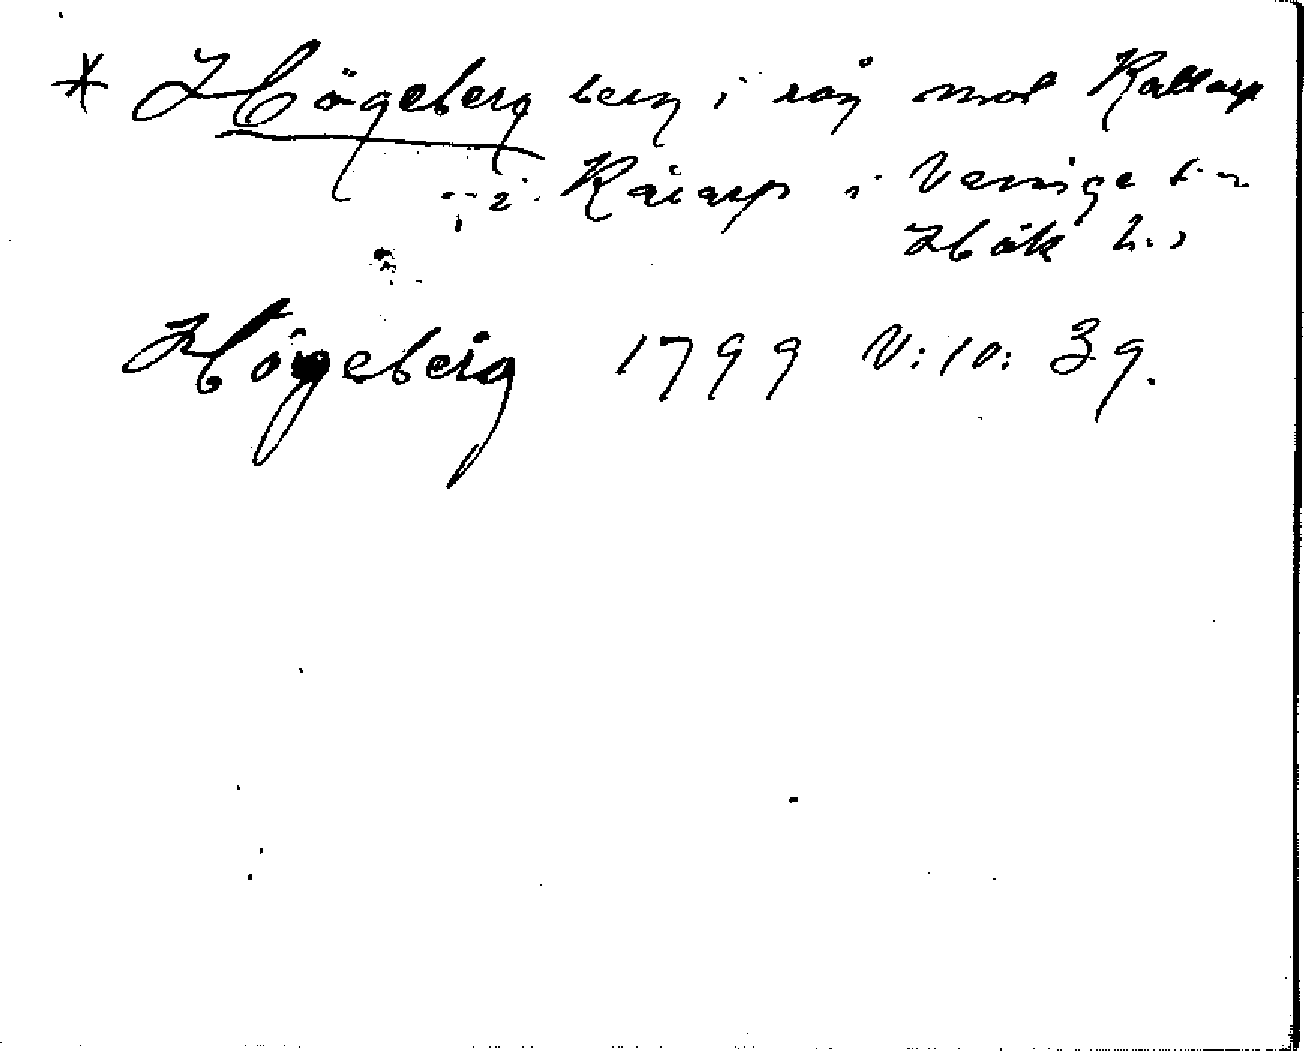 * Högeberg berg i råg mot Kallarp
i Kårarp i Veninge sn
Hök h.
Högeberg 1799 V:10: 39.